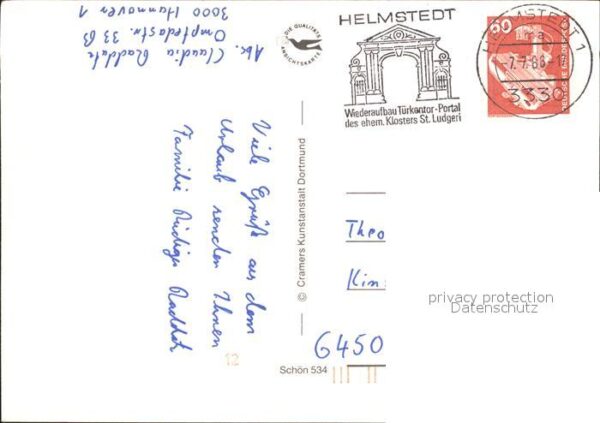 Abs. Claudia Raddatz
Omptedastr. 33 B
3000 Hannover 1
DIE QUALITÄTS
ANSICHTSKARTE
HELMSTEDT
Wiederaufbau Türkentor-Portal
des ehem. Klosters St. Ludgeri
HELMSTEDT 1
ma
-7.7.86-1
3330
60
DEUTSCHE BUNDESPOST
Viele Grüße aus dem
Urlaub senden Ihnen
Familie Rüdiger Raddatz
© Cramers Kunstanstalt Dortmund
Theo
Kin
privacy protection
Datenschutz
6450
12
Schön 534